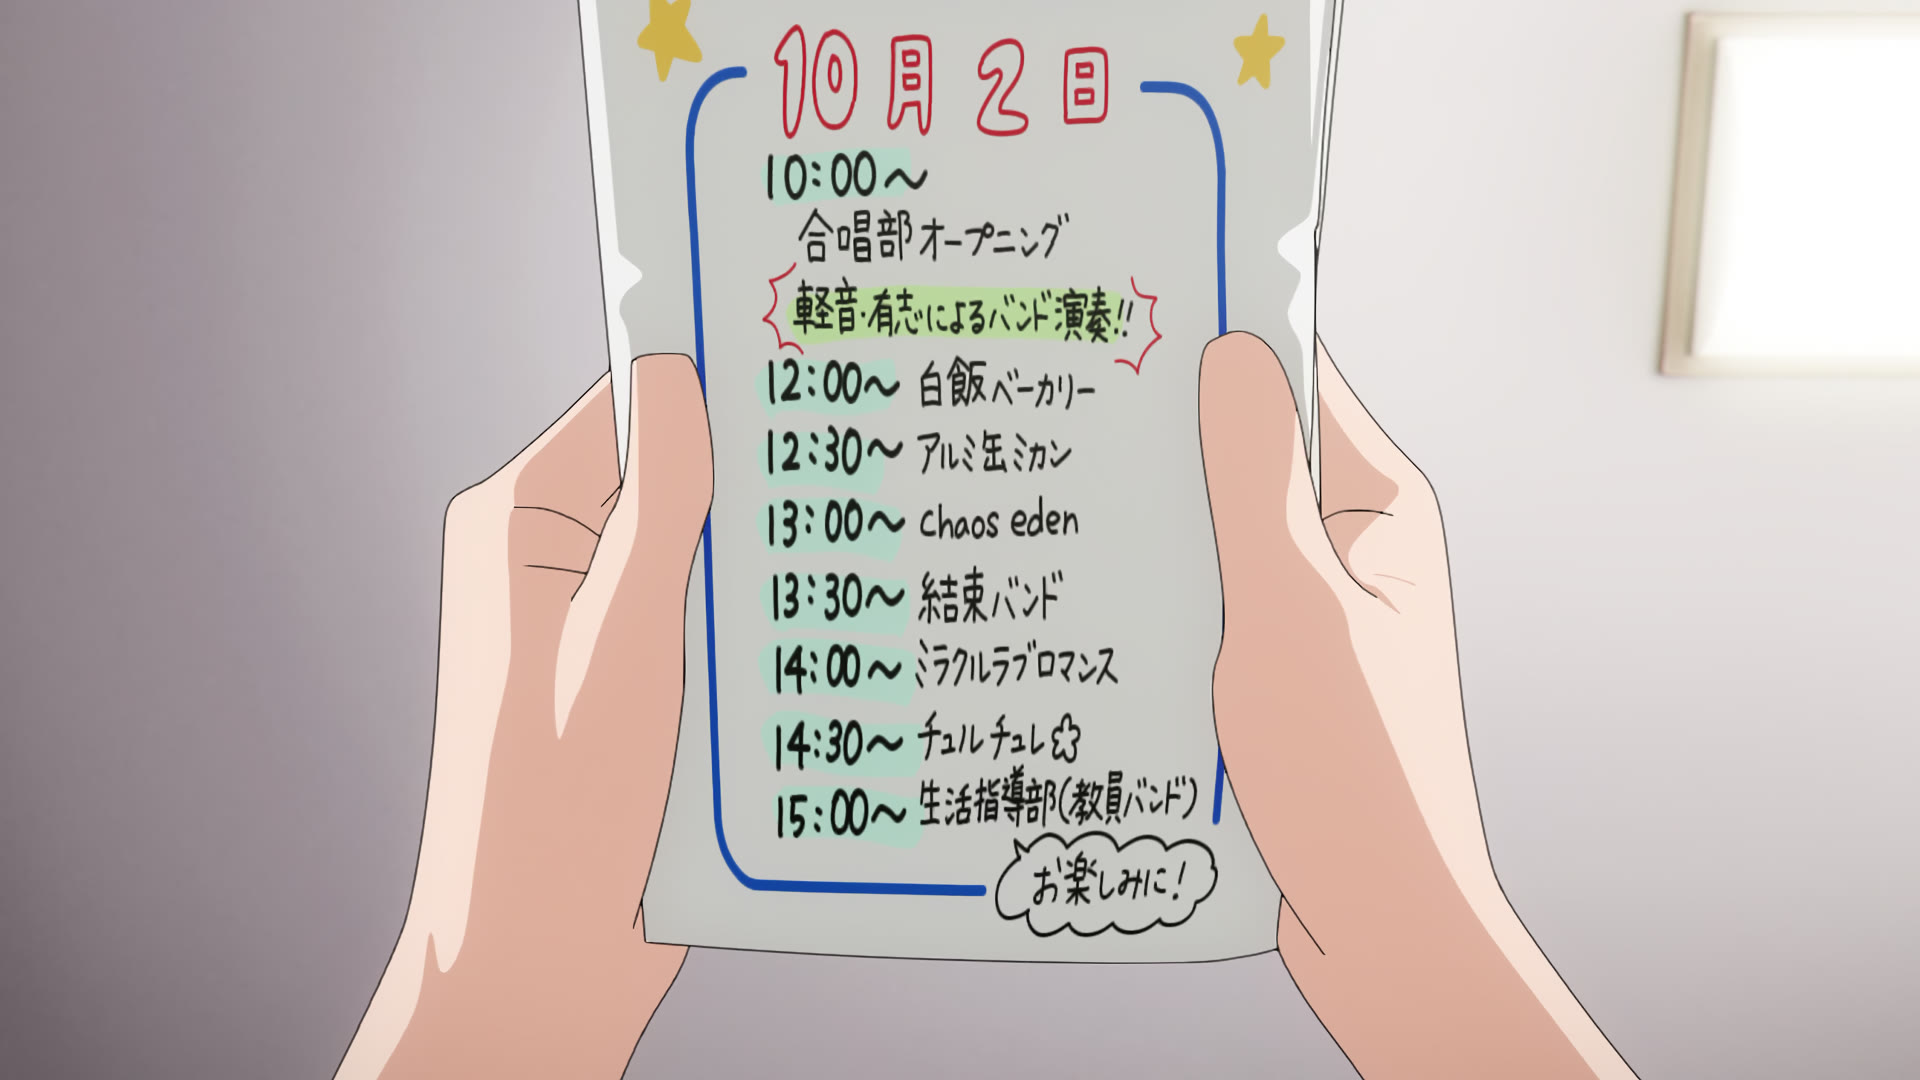 10月2日
10:00～
合唱部オープニング
軽音・有志によるバンド演奏!!
12:00～ 白飯ベーカリー
12:30～ アルミ缶ミカン
13:00～ chaos eden
13:30～ 結束バンド
14:00～ ミラクルラブロマンス
14:30～ チュルチュレ
15:00～ 生活指導部(教員バンド)
お楽しみに!